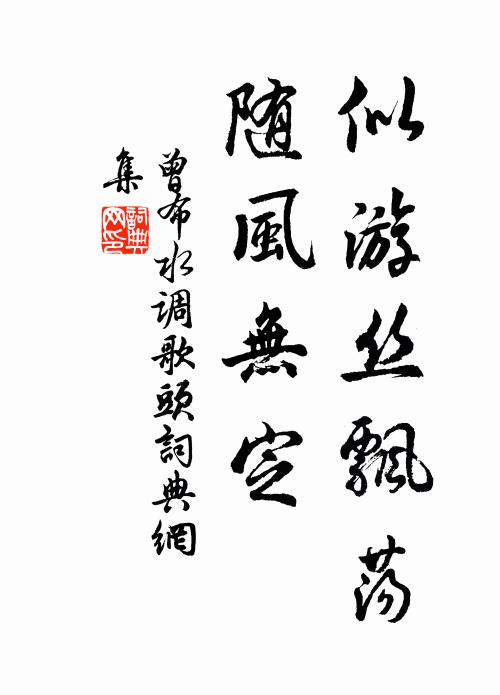 似游丝飘荡
随風無定
曾布水调歌頭詞典網
集
詞典
网印